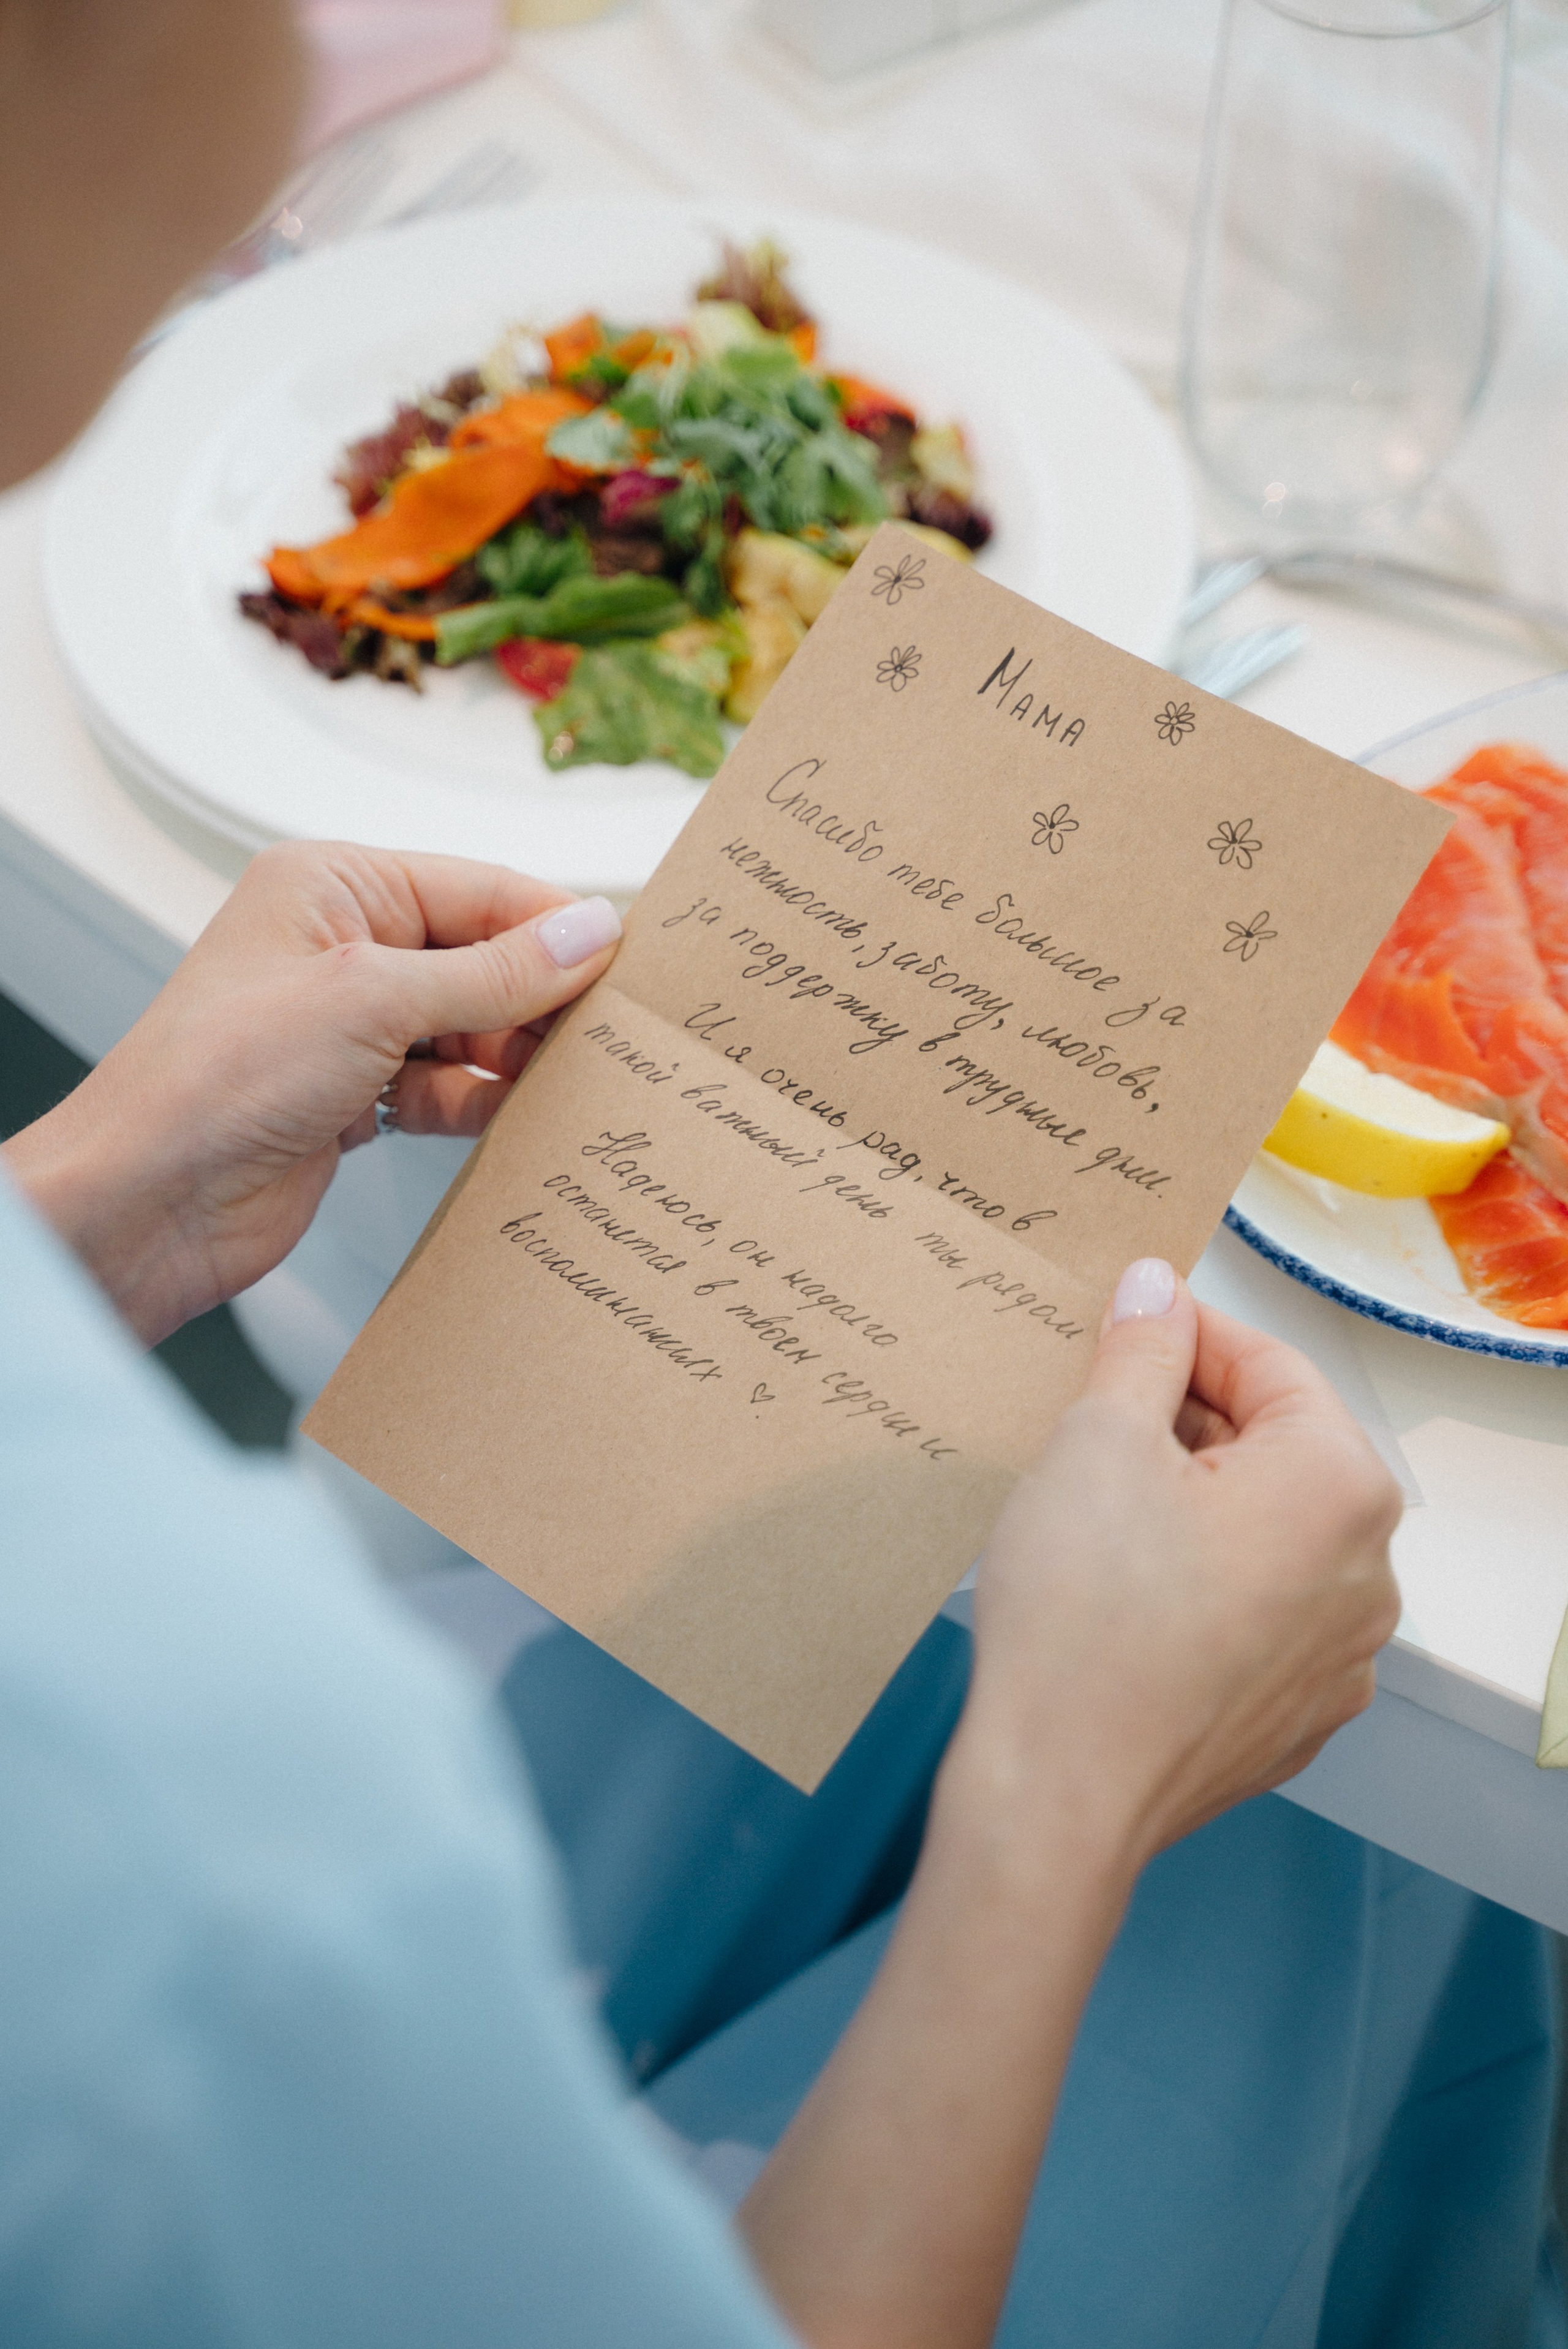 Мама
Спасибо тебе большое за
нежность, заботу, любовь,
за поддержку в трудные дни.
И я очень рад, что в
такой важный день ты рядом
Надеюсь, он надолго
останется в твоем сердце и
воспоминаниях ♡.